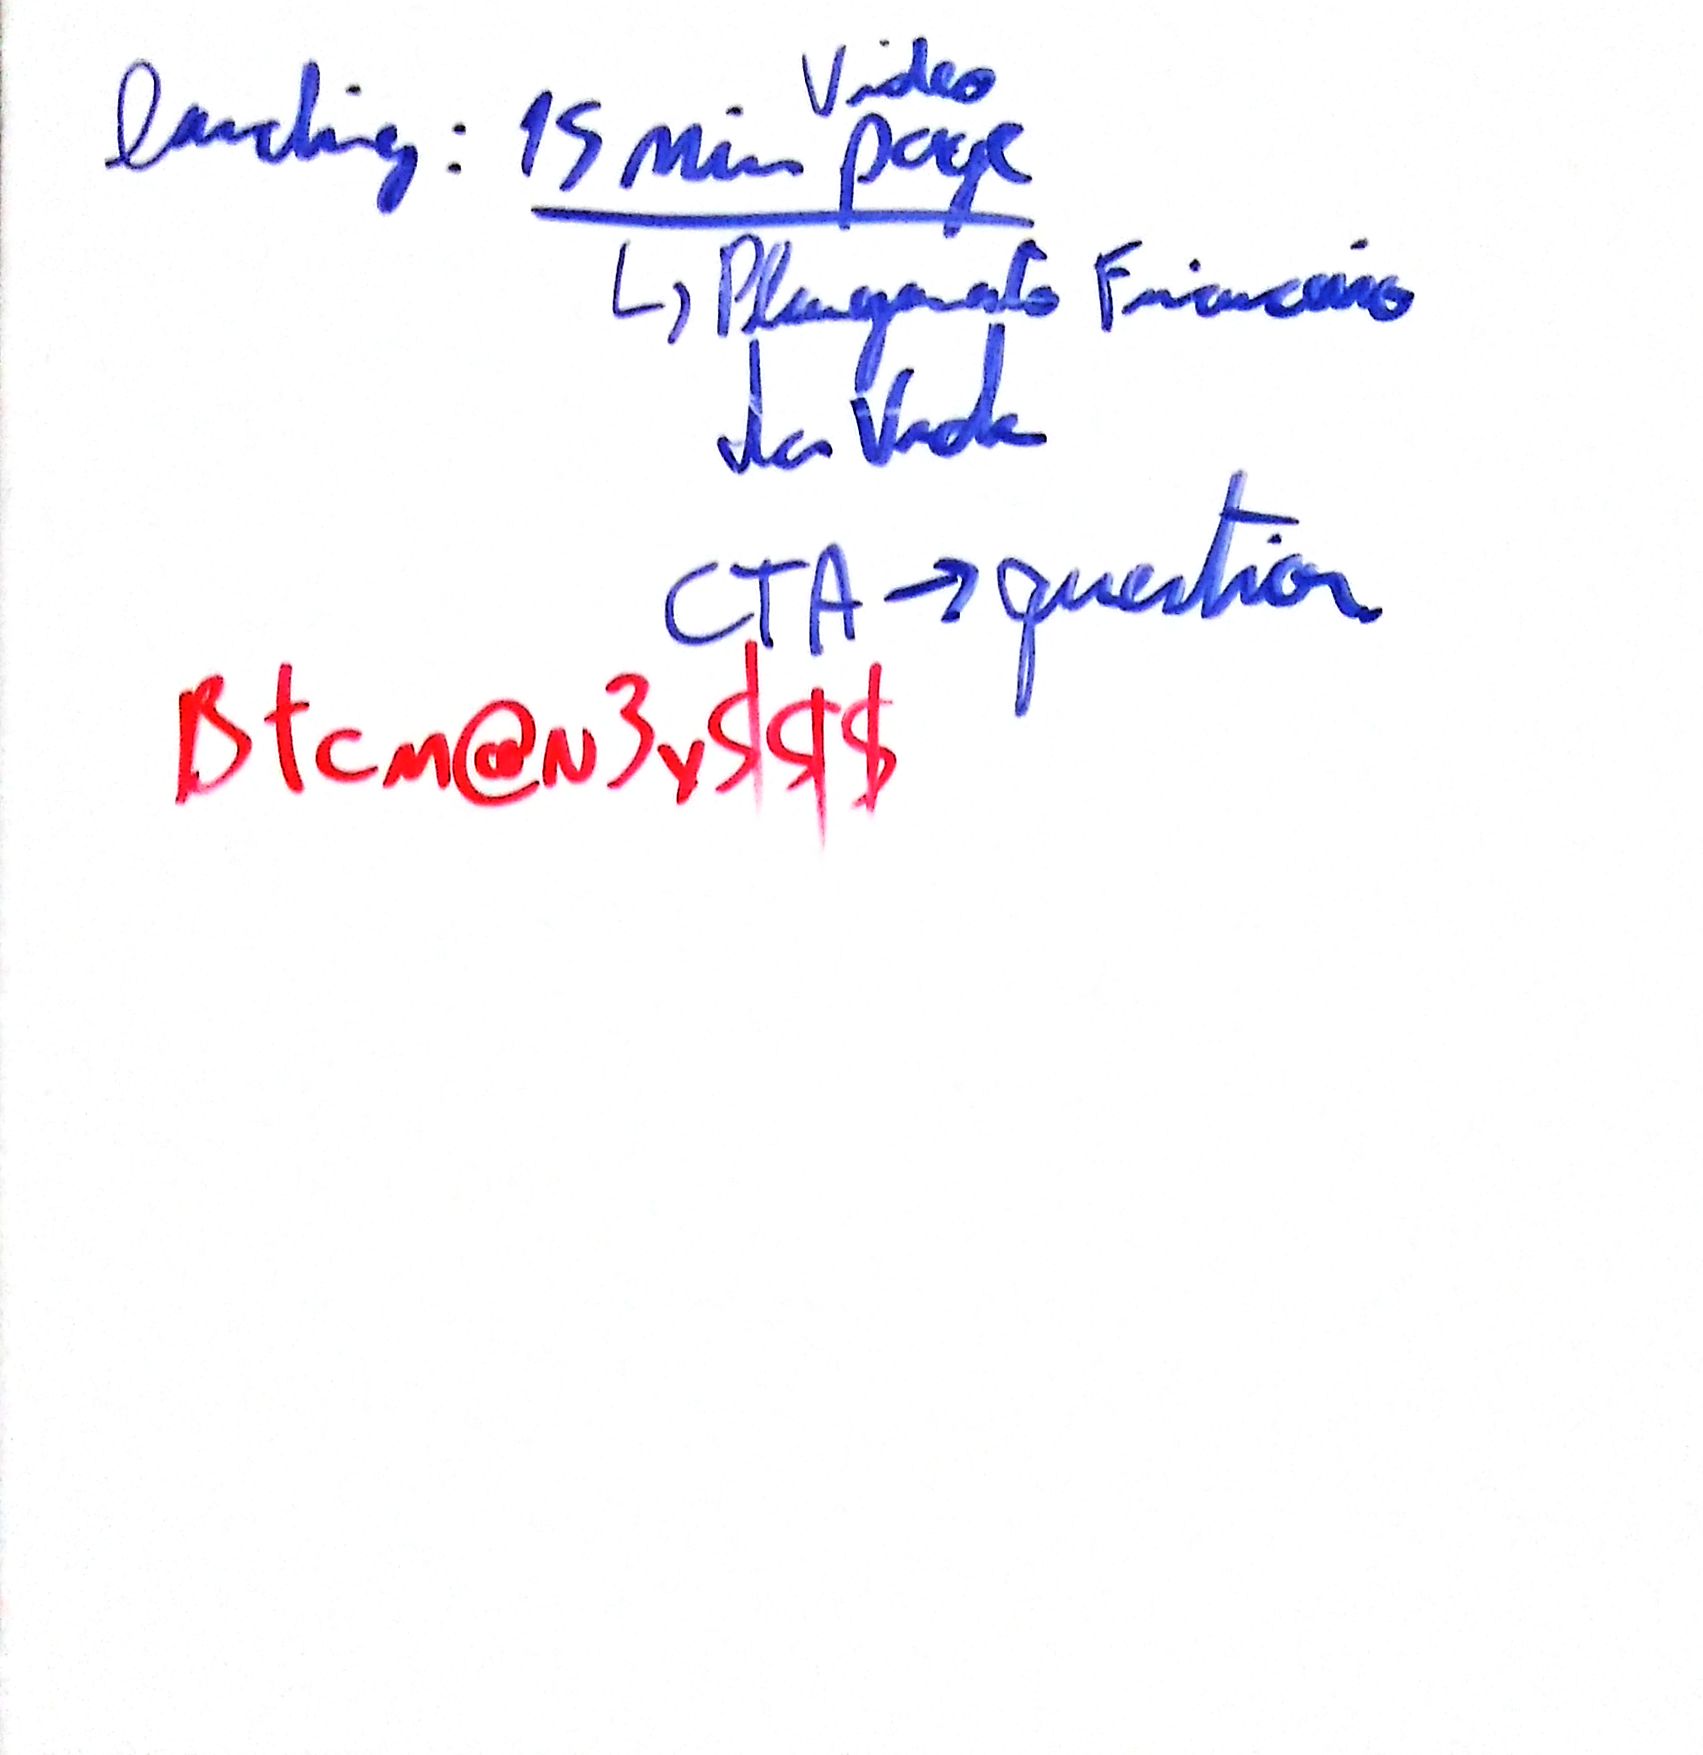 landing: 15 min Video page
↳ Planejamento Financeiro
da Vida
CTA → question
Btcm@N3y$$$